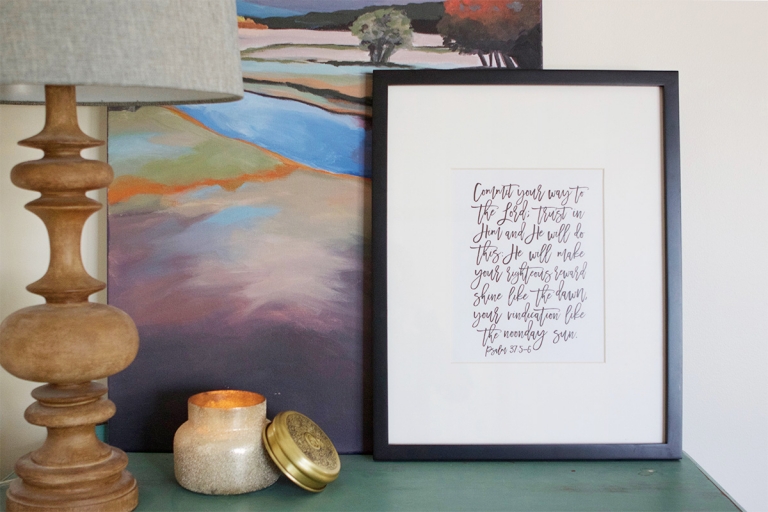 Commit your way to
the Lord; trust in
Him and He will do
this. He will make
your righteous reward
shine like the dawn,
your vindication like
the noonday sun.
Psalm 37:5-6